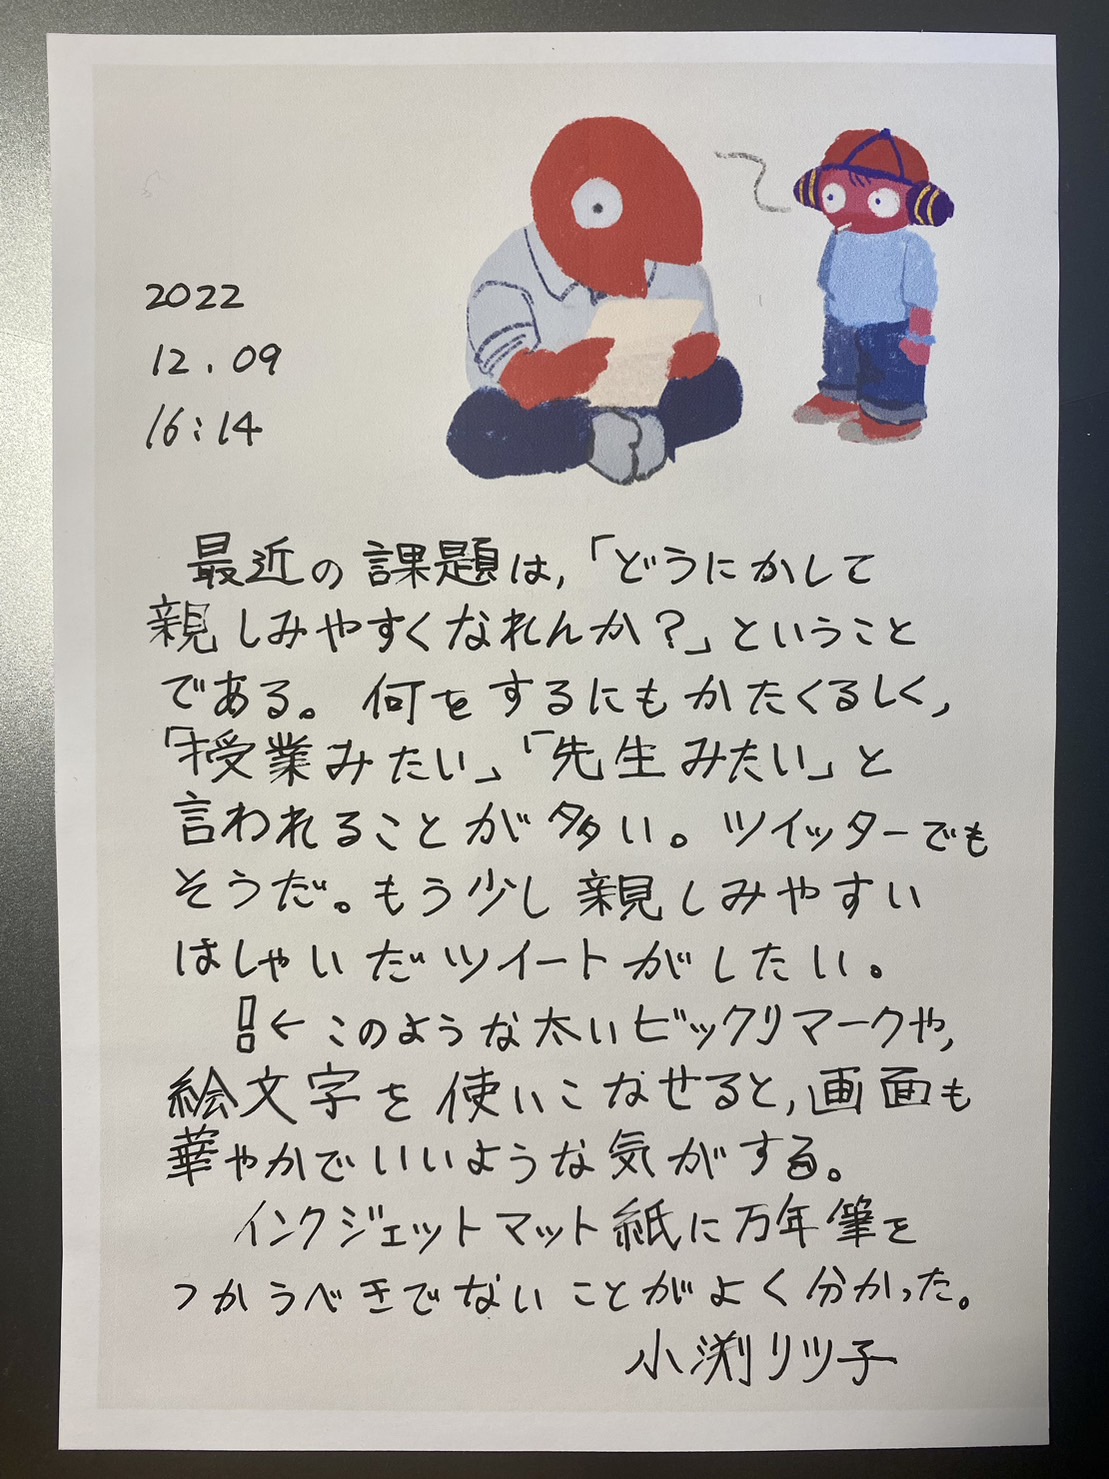 2022
12.09
16:14
最近の課題は,「どうにかして
親しみやすくなれんか?」ということ
である。何をするにもかたくるしく,
「授業みたい」「先生みたい」と
言われることが多い。ツイッターでも
そうだ。もう少し親しみやすい
はしゃいだツイートがしたい。
！←このような太いビックリマークや,
絵文字を使いこなせると,画面も
華やかでいいような気がする。
インクジェットマット紙に万年筆を
つかうべきでないことがよく分かった。
小渕リツ子